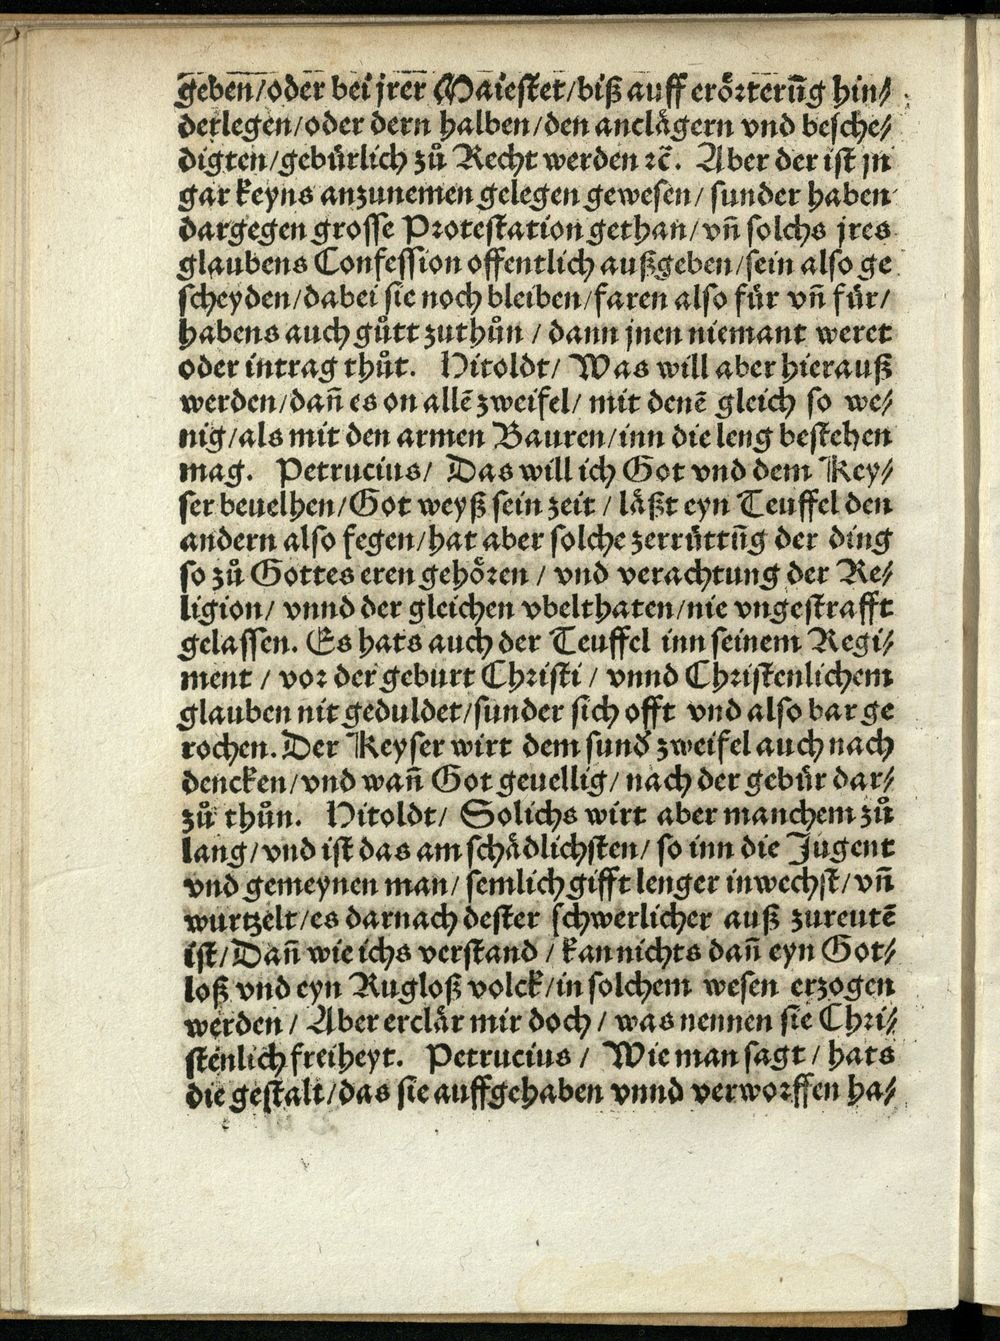 geben/oder bei jrer Maiestet/biß auff erörterūg hin⸗
derlegen/oder dern halben/den anclägern vnd besche⸗
digten/gebürlich zů Recht werden ꝛc̄. Aber der ist jn
gar keyns anzunemen gelegen gewesen/ sunder haben
dargegen grosse Protestation gethan/vn̄ solchs jres
glaubens Confession offentlich außgeben/sein also ge
scheyden/dabei sie noch bleiben/faren also für vn̄ für/
habens auch gůtt zuthůn / dann jnen niemant weret
oder intrag thůt. Nitoldt/ Was will aber hierauß
werden/dan̄ es on allē zweifel/ mit denē gleich so we⸗
nig/als mit den armen Bauren/inn die leng bestehen
mag. Petrucius/ Das will ich Got vnd dem Key⸗
ser beuelhen/Got weyß sein zeit / läßt eyn Teuffel den
andern also fegen/hat aber solche zerrüttūg der ding
so zů Gottes eren gehören / vnd verachtung der Re⸗
ligion/ vnnd der gleichen vbelthaten/nie vngestrafft
gelassen. Es hats auch der Teuffel inn seinem Regi⸗
ment / vor der geburt Christi / vnnd Christenlichem
glauben nit geduldet/sunder sich offt vnd also bar ge
rochen. Der Keyser wirt dem sund zweifel auch nach
dencken/vnd wan̄ Got geuellig/ nach der gebür dar⸗
zů thůn. Nitoldt/ Solichs wirt aber manchem zů
lang/vnd ist das am schädlichsten/ so inn die Jugent
vnd gemeynen man/ semlich gifft lenger inwechst/vn̄
wurtzelt/es darnach dester schwerlicher auß zureutē
ist/Dan̄ wie ichs verstand / kan nichts dan̄ eyn Got⸗
loß vnd eyn Rugloß volck/in solchem wesen erzogen
werden / Aber erclär mir doch / was nennen sie Chri⸗
stenlich freiheyt. Petrucius / Wie man sagt / hats
die gestalt/das sie auffgehaben vnnd verworffen ha⸗